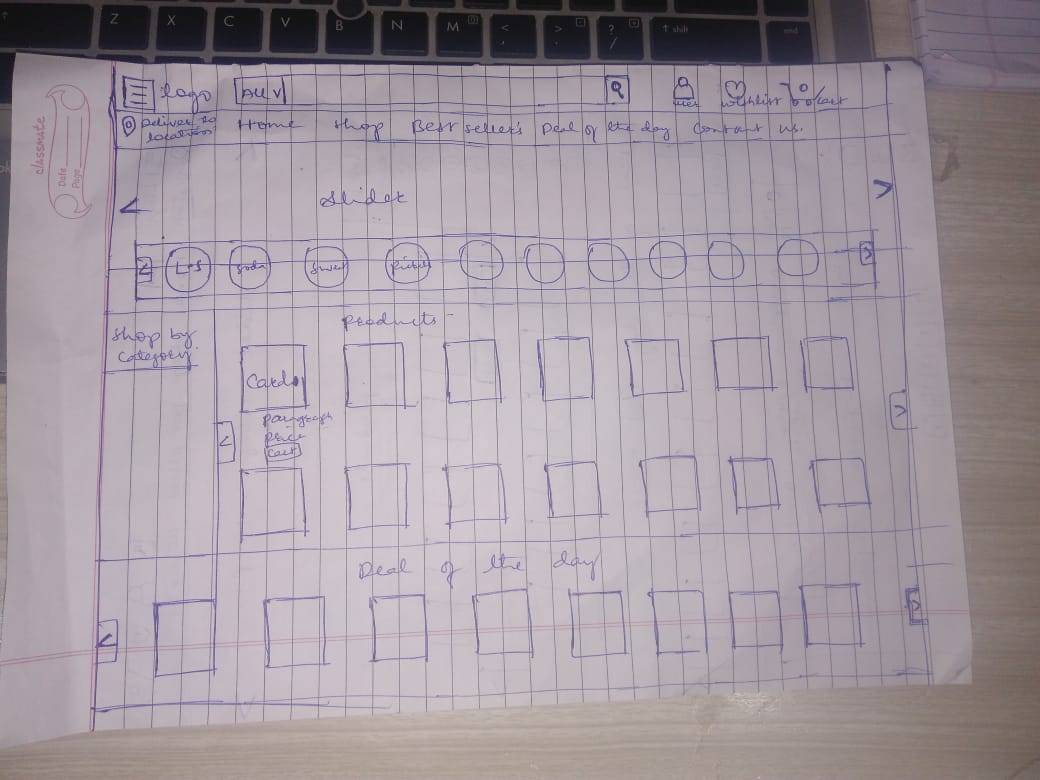 Z X C V B N M < , > . ? / ↑ shift end
classmate
Date
Page
logo ALL v
user wishlist cart
Deliver to
location
Home Shop Best seller's Deal of the day Contant us.
< Slider >
< Soda Sweet >
Shop by
Category
Products
Cards
paragraph
price
cart
< >
Deal of the day
< >